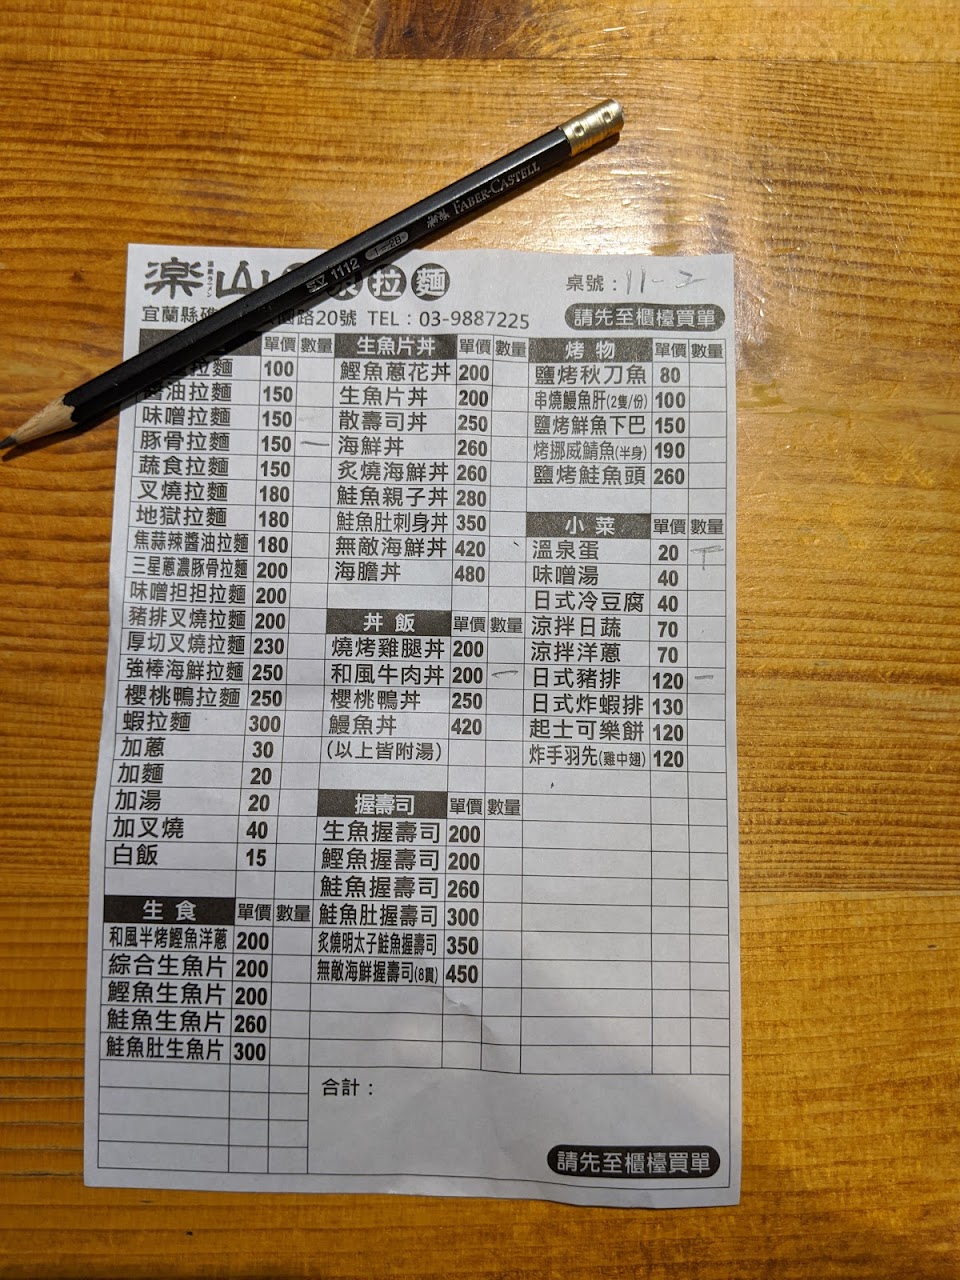 FABER-CASTELL
1112
1=2B
楽山
拉麵
桌號：11-2
宜蘭縣礁
路20號 TEL：03-9887225
請先至櫃檯買單
單價 數量
拉麵 100
醬油拉麵 150
味噌拉麵 150
豚骨拉麵 150 一
蔬食拉麵 150
叉燒拉麵 180
地獄拉麵 180
焦蒜辣醬油拉麵 180
三星蔥濃豚骨拉麵 200
味噌担担拉麵 200
豬排叉燒拉麵 200
厚切叉燒拉麵 230
強棒海鮮拉麵 250
櫻桃鴨拉麵 250
蝦拉麵 300
加蔥 30
加麵 20
加湯 20
加叉燒 40
白飯 15
生食 單價 數量
和風半烤鰹魚洋蔥 200
綜合生魚片 200
鰹魚生魚片 200
鮭魚生魚片 260
鮭魚肚生魚片 300
生魚片丼 單價 數量
鰹魚蔥花丼 200
生魚片丼 200
散壽司丼 250
海鮮丼 260
炙燒海鮮丼 260
鮭魚親子丼 280
鮭魚肚刺身丼 350
無敵海鮮丼 420
海膽丼 480
丼飯 單價 數量
燒烤雞腿丼 200
和風牛肉丼 200 一
櫻桃鴨丼 250
鰻魚丼 420
(以上皆附湯)
握壽司 單價 數量
生魚握壽司 200
鰹魚握壽司 200
鮭魚握壽司 260
鮭魚肚握壽司 300
炙燒明太子鮭魚握壽司 350
無敵海鮮握壽司(8貫) 450
烤物 單價 數量
鹽烤秋刀魚 80
串燒鰻魚肝(2隻/份) 100
鹽烤鮮魚下巴 150
烤挪威鯖魚(半身) 190
鹽烤鮭魚頭 260
小菜 單價 數量
溫泉蛋 20 丅
味噌湯 40
日式冷豆腐 40
涼拌日蔬 70
涼拌洋蔥 70
日式豬排 120 一
日式炸蝦排 130
起士可樂餅 120
炸手羽先(雞中翅) 120
合計：
請先至櫃檯買單